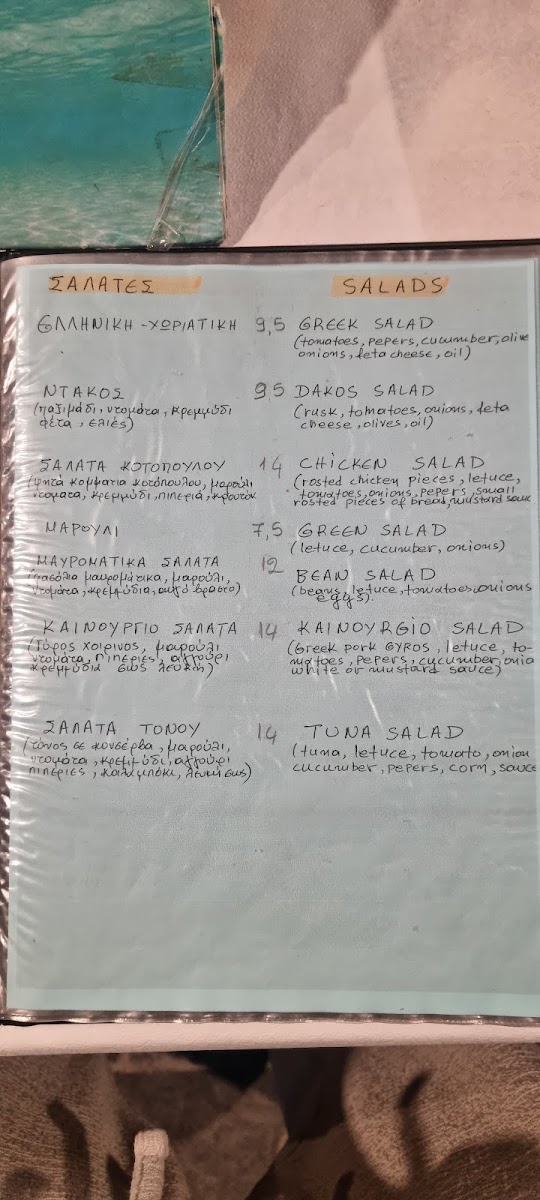 ΣΑΛΑΤΕΣ
SALADS
ΕΛΛΗΝΙΚΗ - ΧΩΡΙΑΤΙΚΗ 9,5 GREEK SALAD
(tomatoes, pepers, cucumber, olive
onions, feta cheese, oil)
ΝΤΑΚΟΣ 9,5 DAKOS SALAD
(παξιμάδι, ντομάτα, κρεμμύδι
φέτα, ελιές)
(rusk, tomatoes, onions, feta
cheese, olives, oil)
ΣΑΛΑΤΑ ΚΟΤΟΠΟΥΛΟΥ 14 CHICKEN SALAD
(ψητά κομματια κοτόπουλου, μαρούλι
ντοματα, κρεμμύδι, πιπεριά, κρουτόν
(rosted chicken pieces, letuce,
tomatoes, onions, pepers, small
rosted pieces of bread, mustard sauc
ΜΑΡΟΥΛΙ 7,5 GREEN SALAD
(letuce, cucumber, onions)
ΜΑΥΡΟΜΑΤΙΚΑ ΣΑΛΑΤΑ 12 BEAN SALAD
(φασόλια μαυρομάτικα, μαρούλι,
ντομάτα, κρεμμύδια, αυγό βραστο)
(beans, letuce, tomatoes, onions
eggs)
ΚΑΙΝΟΥΡΓΙΟ ΣΑΛΑΤΑ 14 KAINOYRGIO SALAD
(Γύρος χοιρινος, μαρούλι
ντομάτα, πιπεριές, αγγούρι
κρεμμύδια σως λευκη)
(Greek pork GYROS, letuce, to-
matoes, pepers, cucumber, onio
white or mustard sauce)
ΣΑΛΑΤΑ ΤΟΝΟΥ 14 TUNA SALAD
(τόνος σε κονσέρβα, μαρούλι,
ντομάτα, κρεμμύδι, αγγούρι
πιπεριές, καλαμπόκι, λευκη σως)
(tuna, letuce, tomato, onion
cucumber, pepers, corn, sauce